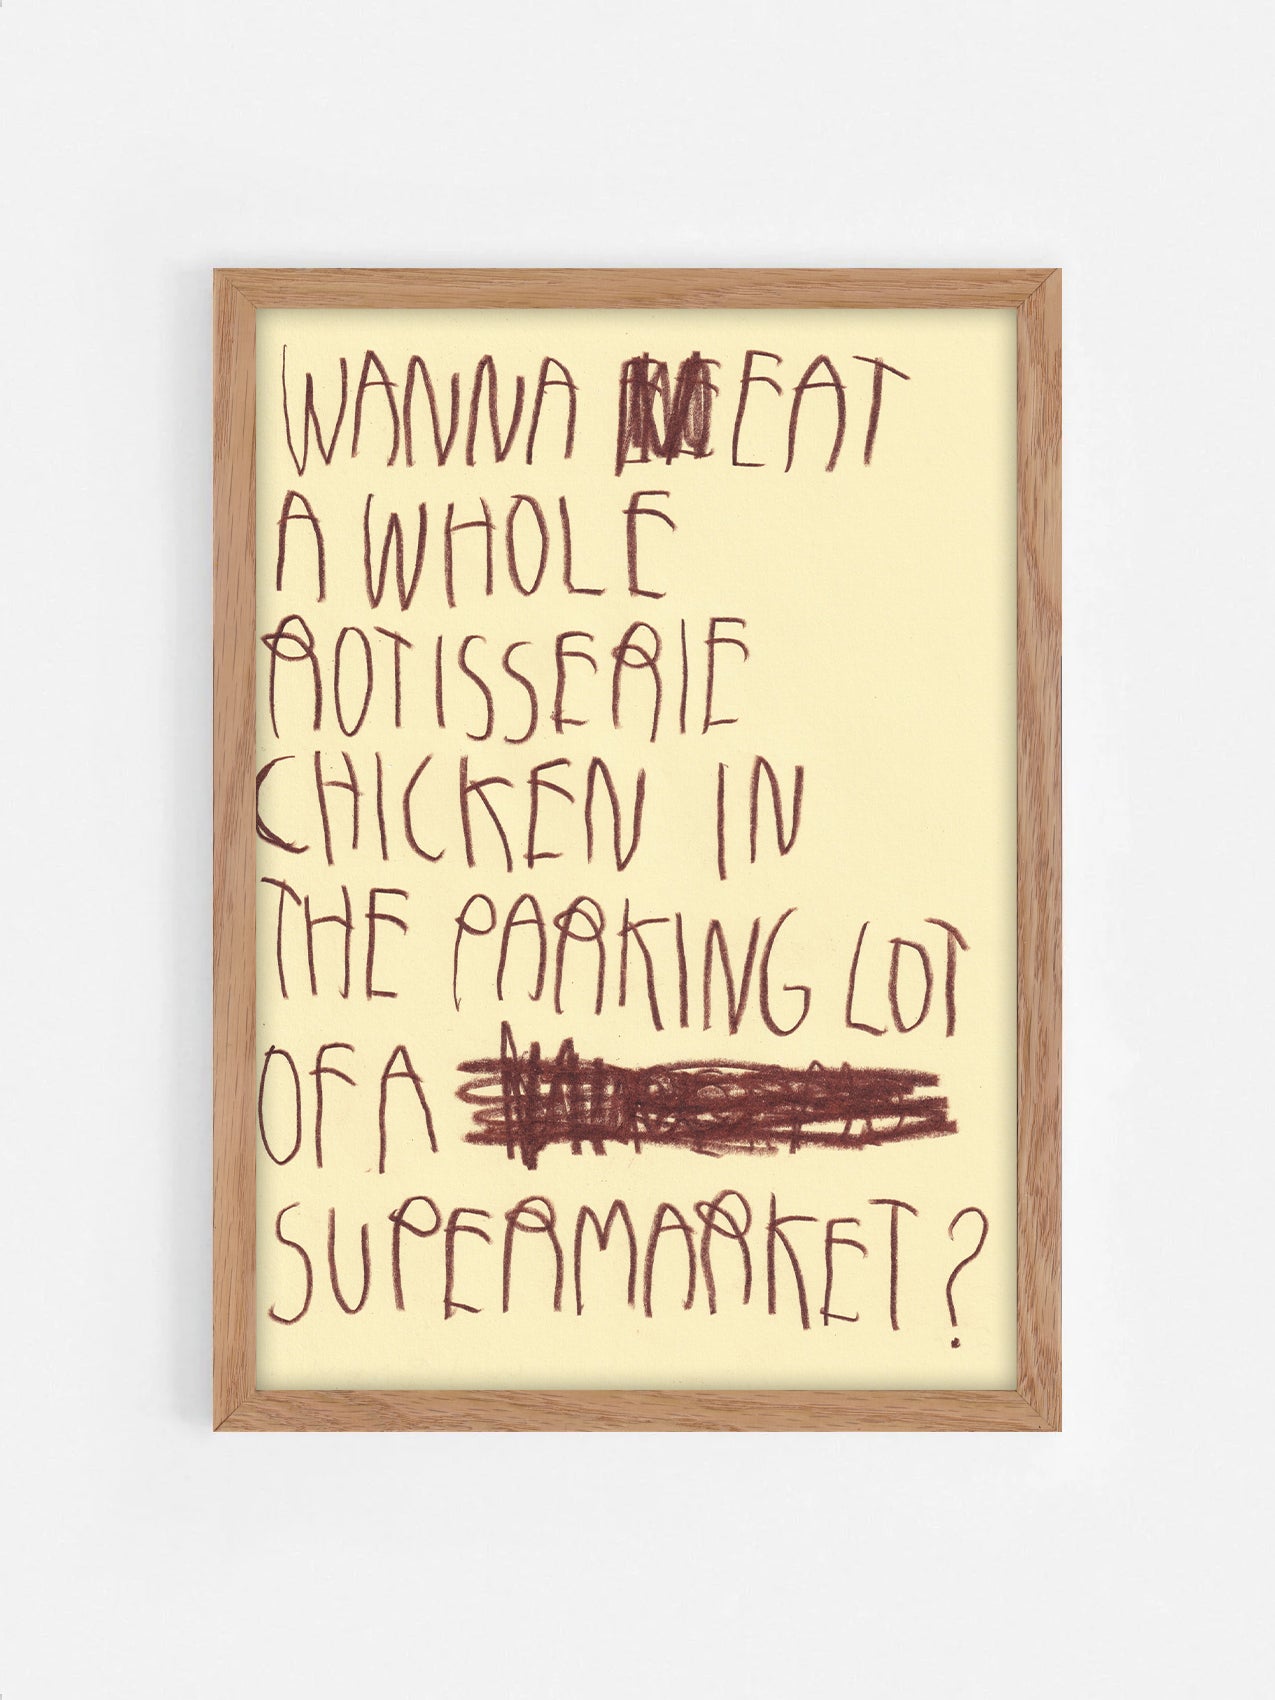 WANNA EAT
A WHOLE
ROTISSERIE
CHICKEN IN
THE PARKING LOT
OF A
SUPERMARKET?